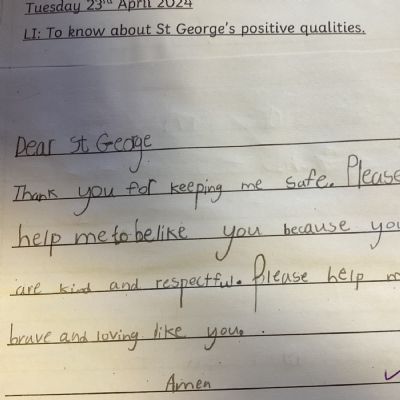 Tuesday 23rd April 2024
LI: To know about St George's positive qualities.
Dear St George
Thank you for keeping me safe. Please
help me to be like you because you
are kind and respectful. Please help
brave and loving like you.
Amen